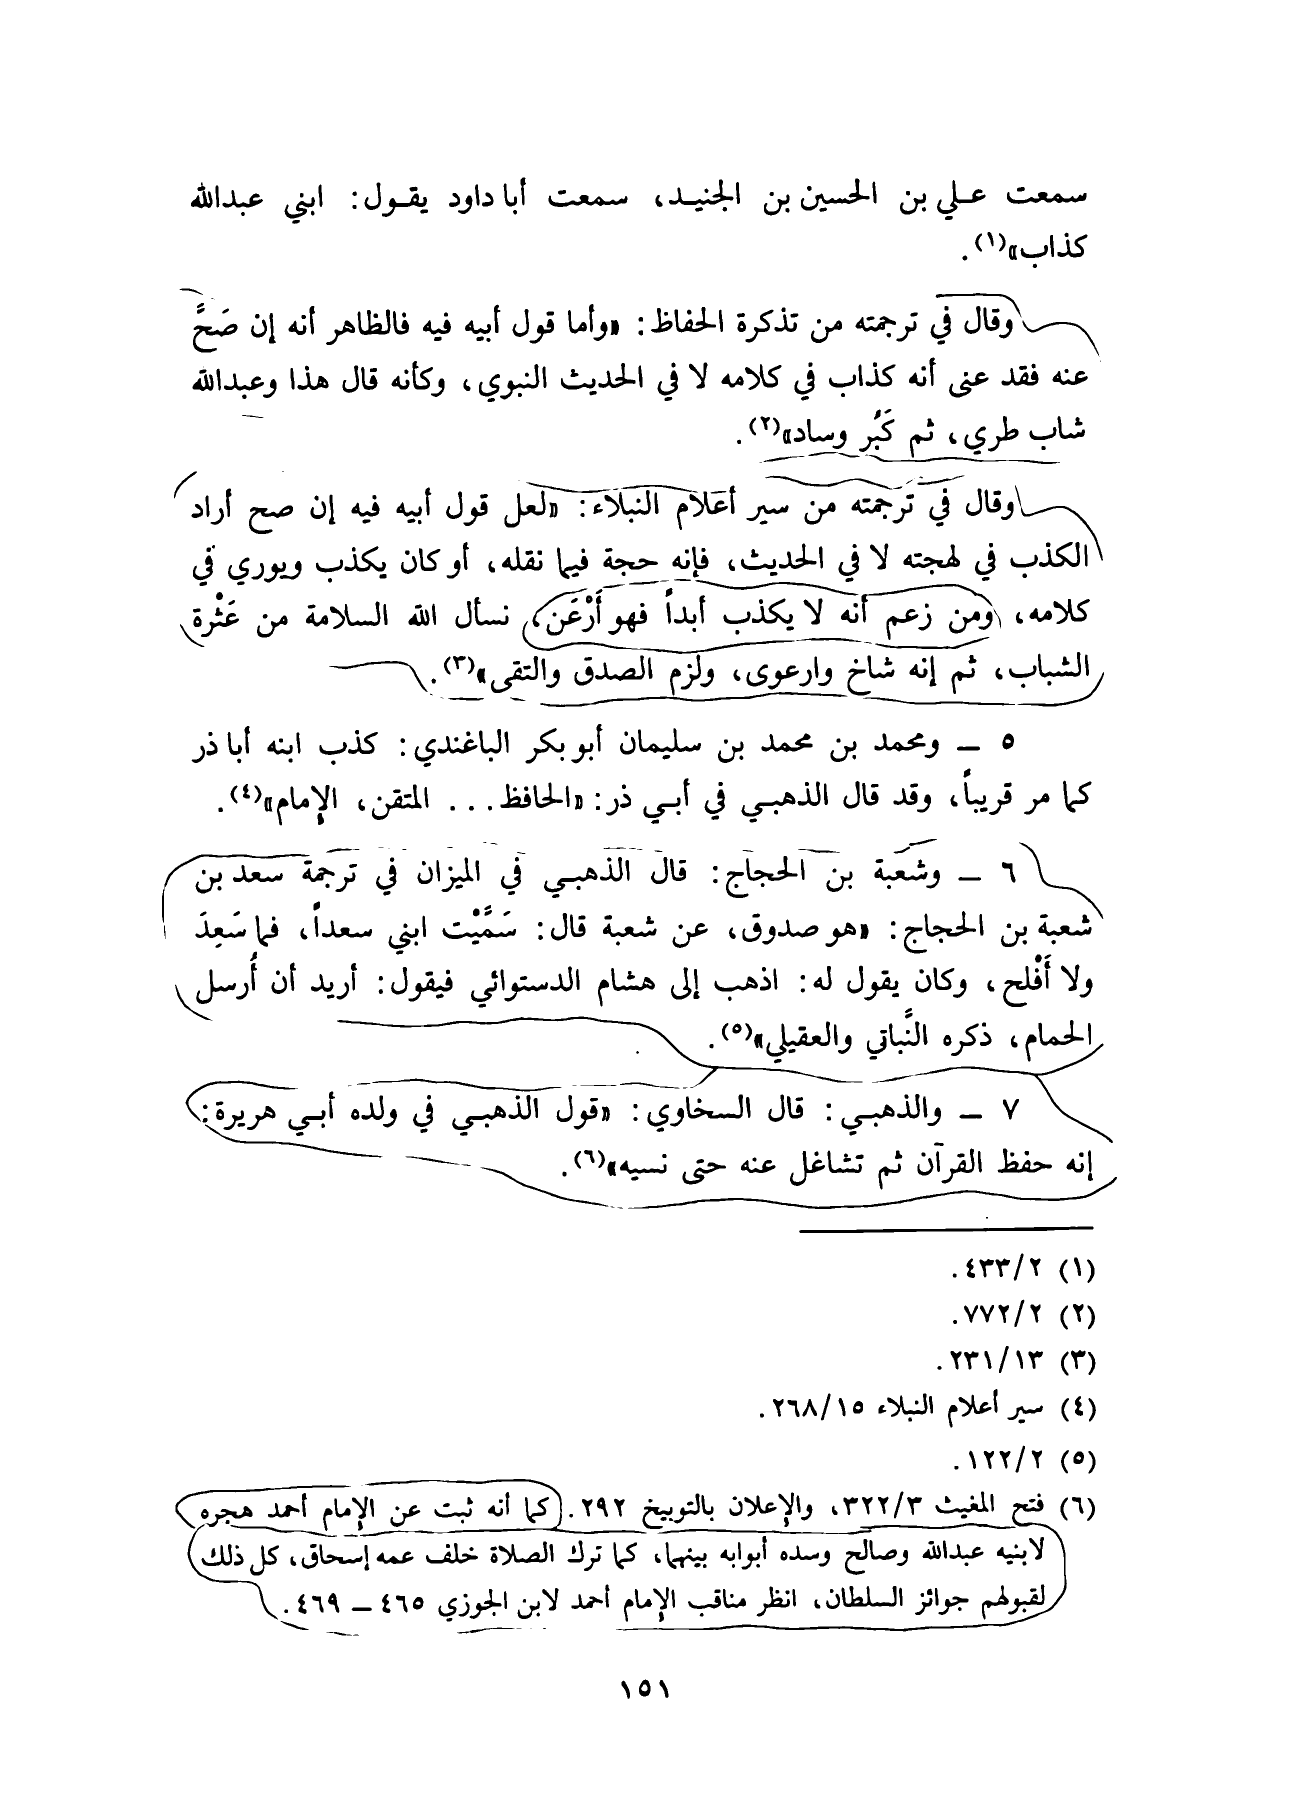 سمعت علي بن الحسين بن الجنيد، سمعت أبا داود يقول: ابني عبدالله
كذاب»(١).
وقال في ترجمته من تذكرة الحفاظ: «وأما قول أبيه فيه فالظاهر أنه إن صَحَّ
عنه فقد عنى أنه كذاب في كلامه لا في الحديث النبوي، وكأنه قال هذا وعبدالله
شاب طري، ثم كَبُر وساد»(٢).
وقال في ترجمته من سير أعلام النبلاء: «لعل قول أبيه فيه إن صح أراد
الكذب في لهجته لا في الحديث، فإنه حجة فيما نقله، أو كان يكذب ويوري في
كلامه، ومن زعم أنه لا يكذب أبداً فهو أَرْعَن، نسأل الله السلامة من عَثْرة
الشباب، ثم إنه شاخ وارعوى، ولزم الصدق والتقى»(٣).
٥ ــ ومحمد بن محمد بن سليمان أبو بكر الباغندي: كذب ابنه أبا ذر
كما مر قريباً، وقد قال الذهبي في أبي ذر: «الحافظ... المتقن، الإمام»(٤).
٦ ــ وشعبة بن الحجاج: قال الذهبي في الميزان في ترجمة سعد بن
شعبة بن الحجاج: «هو صدوق، عن شعبة قال: سَمَّيْت ابني سعداً، فما سَعِدَ
ولا أَفْلح، وكان يقول له: اذهب إلى هشام الدستوائي فيقول: أريد أن أُرسل
الحمام، ذكره النَّباتي والعقيلي»(٥).
٧ ــ والذهبي: قال السخاوي: «قول الذهبي في ولده أبي هريرة:
إنه حفظ القرآن ثم تشاغل عنه حتى نسيه»(٦).
(١) ٤٣٣/٢.
(٢) ٧٧٢/٢.
(٣) ٢٣١/١٣.
(٤) سير أعلام النبلاء ٢٦٨/١٥.
(٥) ١٢٢/٢.
(٦) فتح المغيث ٣٢٢/٣، والإعلان بالتوبيخ ٢٩٢. كما أنه ثبت عن الإمام أحمد هجره
لابنيه عبدالله وصالح وسده أبوابه بينهما، كما ترك الصلاة خلف عمه إسحاق، كل ذلك
لقبولهم جوائز السلطان، انظر مناقب الإمام أحمد لابن الجوزي ٤٦٥ ــ ٤٦٩.
١٥١